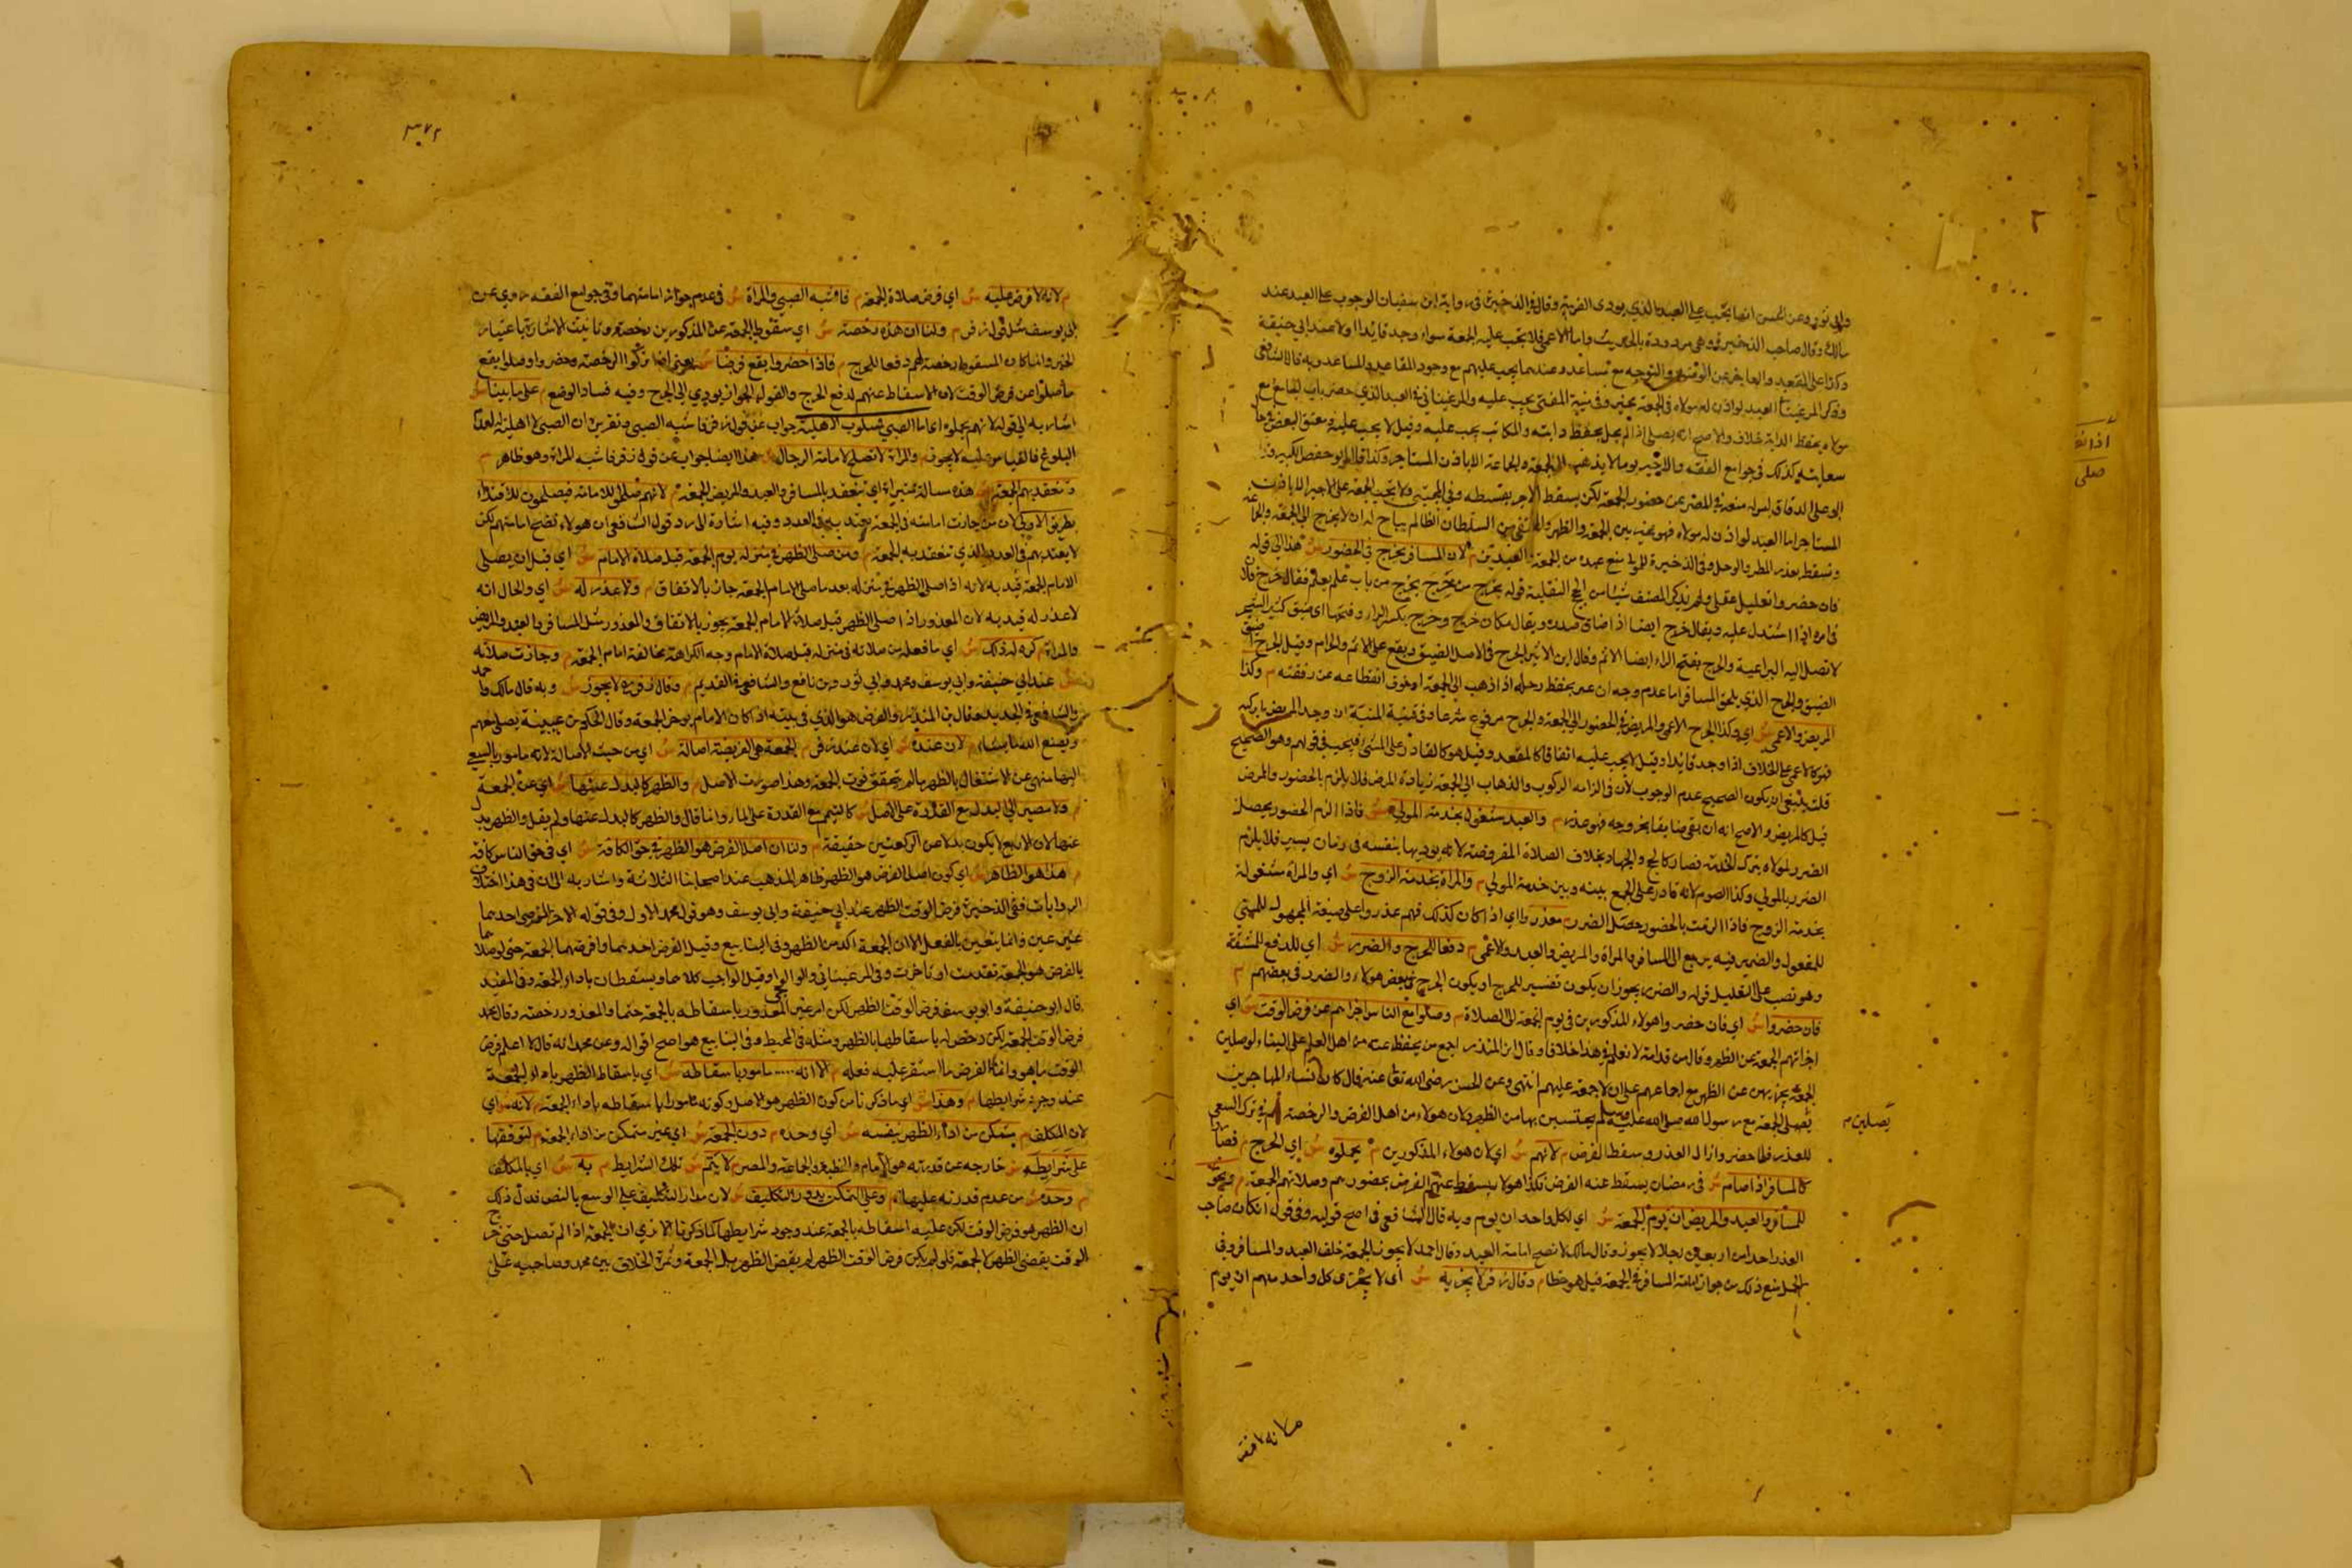 وابي ثور وعن الحسن انها تجب على العبد الذي يودى الضريبة وقال في الذخيرة في رواية ابن سفيان الوجوب على العبد عند
مالك وقال صاحب الذخيرة وهي مردودة بالحديث واما الاعمى فلا تجب عليه الجمعة سواء وجد قائدا اولا عند ابي حنيفة
وكذا على المقعد والعاجز عن الوضوء والتوجه مع مساعد وعندهما يجب عليهم مع وجود المقاعد والمساعد وبه قال الشافعي
وذكر المرغيناني العبد لو اذن له مولاه في الجمعة يخير وفي منية المفتي يجب عليه والمرغيناني في العبد الذي حضر باب الجامع مع
مولاه بحفظ الدابة خلاف والاصح انه يصلي اذا لم يخل بحفظ دابته والمكاتب يجب عليه وقيل لا يجب عليه ومعتق البعض في حال
سعايته كذلك في جوامع الفقه والاجير يوما لا يذهب الى الجمعة والجماعة الا باذن المستاجر وكذا قال ابو حفص الكبير وقال
ابو علي الدقاق ليس له منعه في المصر عن حضور الجمعة لكن يسقط الاجر بقسطه وفي المجتبى ولا تجب الجمعة على الاجير الا باذن
المستاجر اما العبد لو اذن له مولاه فهو مخير بين الجمعة والظهر والمختفي من السلطان الظالم يباح له ان لا يخرج الى الجمعة والجماعة
وتسقط بعذر المطر والوحل وفي الذخيرة للمولى منع عبده من الجمعة والعيدين م لان المسافر يحرج في الحضور ش هذا الى قوله
فان حضروا تعليل عقلي ولم يذكر المصنف شيئا من الحجج النقلية قوله يحرج من حرج يحرج من باب علم يعلم فقال حرج فلان
في امره اذا استدل عليه ويقال حرج ايضا اذا ضاق صدره ويقال مكان حرج وحرج بكسر الراء وفتحها اى ضيق كثير الشجر
لا تصل اليه الراعية والحرج بفتح الراء ايضا الاثم وقال ابن الاثير الحرج في الاصل الضيق ويقع على الاثم والحرام وقيل الحرج اضيق
الضيق والحرج الذي يلحق المسافر اما عدم وجدان من يحفظ رحله اذا ذهب الى الجمعة او خوف انقطاعه عن رفقته م وكذا
المريض والاعمى ش اي وكذا الحرج الاعمى والمريض في الحضور الى الجمعة والحرج مرفوع شرعا وفي قنية المنية ان وجد المريض ما يركبه
فهو كالاعمى على الخلاف اذا وجد قائدا وقيل لا يجب عليه اتفاقا كالمقعد وقيل هو كالقادر على المشي فيجب في قولهم وهو الصحيح
قلت ينبغي ان يكون الصحيح عدم الوجوب لان في الزامه الركوب والذهاب الى الجمعة زيادة المرض فلا يلزم بالحضور والممرض
قيل كالمريض والاصح انه ان بقي ضايعا بخروجه فهو عذر م والعبد مشغول بخدمة المولى ش فاذا الزم الحضور يحصل
الضرر لمولاه بترك الخدمة فصار كالحج والجهاد بخلاف الصلاة المفروضة لانه يوديها بنفسه في زمان يسير فلا يلزم
الضرر بالمولى وكذا الصوم لانه قادر على الجمع بينه وبين خدمة المولى م والمراة بخدمة الزوج ش اي والمراة مشغولة
بخدمة الزوج فاذا الزمت بالحضور حصل الضرر م فعذروا اي اذا كان كذلك فهم عذروا على صيغة المجهول المبني
للمفعول والضمير فيه يرجع الى المسافر والمراة والمريض والعبد والاعمى م دفعا للحرج والضرر ش اي للدفع للمشقة
وهو نصب على التعليل قوله والضرر يجوز ان يكون تفسير للحرج او يكون الحرج في بعض هولاء والضرر في بعضهم م
فان حضروا ش اي فان حضروا هولاء المذكورين في يوم الجمعة الى الصلاة م وصلوا مع الناس اجزاهم عن فرض الوقت ش اي
اجزاتهم الجمعة عن الظهر وقال ابن قدامة لا نعلم في هذا خلافا وقال ابن المنذر اجمع من يحفظ عنه من اهل العلم على النساء لو صلين
الجمعة يجزيهن عن الظهر مع اجماعهم على ان لا جمعة عليهم انتهى وعن الحسن رضى الله تعالى عنه قال كان نساء المهاجرين
يصلى الجمعة مع رسول الله صلى الله عليه وسلم يحتسبن بها من الظهر ولان هولاء من اهل الفرض والرخصة لهم في ترك السعي
يصلين م
للعذر فلما حضروا زال العذر وسقط الفرض م لانهم ش اي لان هولاء المذكورين م تحملوه ش اي الحرج م فصاروا
كالمسافر اذا صام ش في رمضان يسقط عنه الفرض فكذا هولاء يسقط عنهم الفرض بحضورهم وصلاتهم الجمعة م ويجوز
للمسافر والعبد والمريض ان يوم الجمعة ش اي لكل واحد ان يوم وبه قال الشافعي في اصح قوليه وفي قول ان كان صاحب
العذر احد من اربعين رجلا لا يجوز وقال مالك لا تصح امامة العبد وقال احمد لا يجوز الجمعة خلف العبد والمسافر وفي
الحلية منع ذلك من جواز امامة المسافر في الجمعة قيل هو خطا م وقال زفر لا يجزيه ش اى لا يجزى كل واحد منهم ان يوم
م لانه لا فرض
٣٧٢
م لانه لا فرض عليه ش اي فرض صلاة الجمعة م فاشبه الصبي والمراة ش في عدم جواز امامتهما وفي جوامع الفقه روي عن
ابي يوسف مثل قول زفر م ولنا ان هذه رخصة ش اي سقوط الجمعة عن المذكورين رخصة وتانيث الاشارة باعتبار
الخبر وانما كان المسقوط رخصة لهم دفعا للحرج م فاذا حضروا يقع فرضا ش يعني اذا تركوا الرخصة وحضروا وصلوا يقع
ما صلوا عن فرض الوقت لان الاسقاط عنهم لدفع الحرج والقول بعدم الجواز يودي الى الحرج وفيه فساد الوضع م على ما بينا ش
اشار به الى قوله لانهم تحملوه اما الصبي فمسلوب الاهلية جواب عن قول زفر فاشبه الصبي وتقريره ان الصبي لا اهلية له لعدم
البلوغ فالقياس عليه لا يجوز م والمراة لا تصلح لامامة الرجال ش هذا ايضا جواب عن قول زفر فاشبه المراة وهو ظاهر م
وتنعقد بهم الجمعة ش هذه مسالة مبتدأة اي تنعقد بالمسافر والعبد والمريض الجمعة م لانهم صلحوا للامامة فيصلحون للاقتداء
بطريق الاولى لان من جازت امامته في الجمعة يعتد به في العدد وفيه اشارة الى رد قول الشافعي ان هولاء تصح امامتهم لكن
لا يعتد بهم في العدد الذي تنعقد به الجمعة م ومن صلى الظهر في منزله يوم الجمعة قبل صلاة الامام ش اي قبل ان يصلى
الامام الجمعة قيد به لانه اذا صلى الظهر في منزله بعد ما صلى الامام الجمعة جاز بالاتفاق م ولا عذر له ش اي والحال انه
لا عذر له قيد به لان المعذور اذا صلى الظهر قبل صلاة الامام الجمعة يجوز بالاتفاق والمعذور مثل المسافر والعبد والمريض
والمراة م كره له ذلك ش اي ما فعله من صلاته في منزله قبل صلاة الامام وجه الكراهة مخالفة امام الجمعة م وجازت صلاته
ش عند ابي حنيفة وابي يوسف ومحمد وابي ثور وبن نافع والشافعي في القديم م وقال زفر لا يجوز ش وبه قال مالك واحمد
والشافعي في الجديد وقال بن المنذر والفرض هو الذي في بيته اذا كان الامام يوخر الجمعة وقال الحكم بن عيينة يصلى معهم
ويصنع الله ما يشاء م لان عنده ش اي لان عند زفر م الجمعة هي الفريضة اصالة ش اي من حيث الاصالة لانه مامور بالسعي
اليها منهي عن الاشتغال بالظهر ما لم يتحقق فوت الجمعة وهذا صورت الاصل م والظهر كالبدل عنها ش اي عن الجمعة
م ولا مصير الى البدل مع القدرة على الاصل ش كالتيمم مع القدرة على الماء وانما قال والظهر كالبدل عنها ولم يقل والظهر بدل
عنها لان الاربع لا يكون بدلا عن الركعتين حقيقة م ولنا ان اصل الفرض هو الظهر في حق الكافة ش اي في حق الناس كافة
م هذا هو الظاهر ش اي كون اصل الفرض هو الظهر ظاهر المذهب عند اصحابنا الثلاثة واشار به الى ان في هذا اختلاف
الروايات ففي الذخيرة فرض الوقت الظهر عند ابي حنيفة وابي يوسف وهو قول محمد الاول وفي قوله الاخر الفرض احدهما
غير عين وانما يتعين بالفعل الا ان الجمعة اكد من الظهر وفي الينابيع وقيل الفرض احدهما وافرضهما الجمعة حتى لو صلاهما
بالفرض هو الجمعة تقدمت او تاخرت وفي المرغيناني والوالوالجي وقيل الواجب كلاهما ويسقطان باداء الجمعة وفي المفيد
قال ابو حنيفة وابو يوسف فرض الوقت الظهر لكن امر غير المعذور باسقاطه بالجمعة حتما والمعذور رخصة وقال محمد
فرض الوقت الجمعة لكن رخص له باسقاطها بالظهر ومثله في المحيط وفي الينابيع هو اصح اقواله وعن محمد انه قال لا اعلم فرض
الوقت ما هو وانما الفرض ما استقر عليه فعله م الا انه ..... مامور باسقاطه ش اي باسقاط الظهر باداء الجمعة
عند وجود شرايطها م وهذا ش اي ما ذكرنا من كون الظهر هو الاصل وكونه مامورا باسقاطه باداء الجمعة م لانه ش اي
لان المكلف م يتمكن من اداء الظهر بنفسه ش اي وحده م دون الجمعة ش اي غير متمكن من اداء الجمعة م لتوقفها
على شرايط ش خارجه عن قدرته هو الامام والخطبة والجماعة والمصر م لا يتم ش تلك الشرايط م به ش اي بالمكلف
م وحده ش من عدم قدرته عليها م وعلى التمكن يدور التكليف ش لان مدار التكليف على الوسع بالنص فدل ذلك
ان الظهر هو فرض الوقت لكن عليه اسقاطه بالجمعة عند وجود شرايطها كما ذكرنا الا ترى ان الجمعة اذا لم تصل حتى خرج
الوقت يقضى الظهر لا الجمعة فلو لم يكن فرض الوقت الظهر لم يقض الظهر بدل الجمعة وثمرة الخلاف بين محمد وصاحبيه على